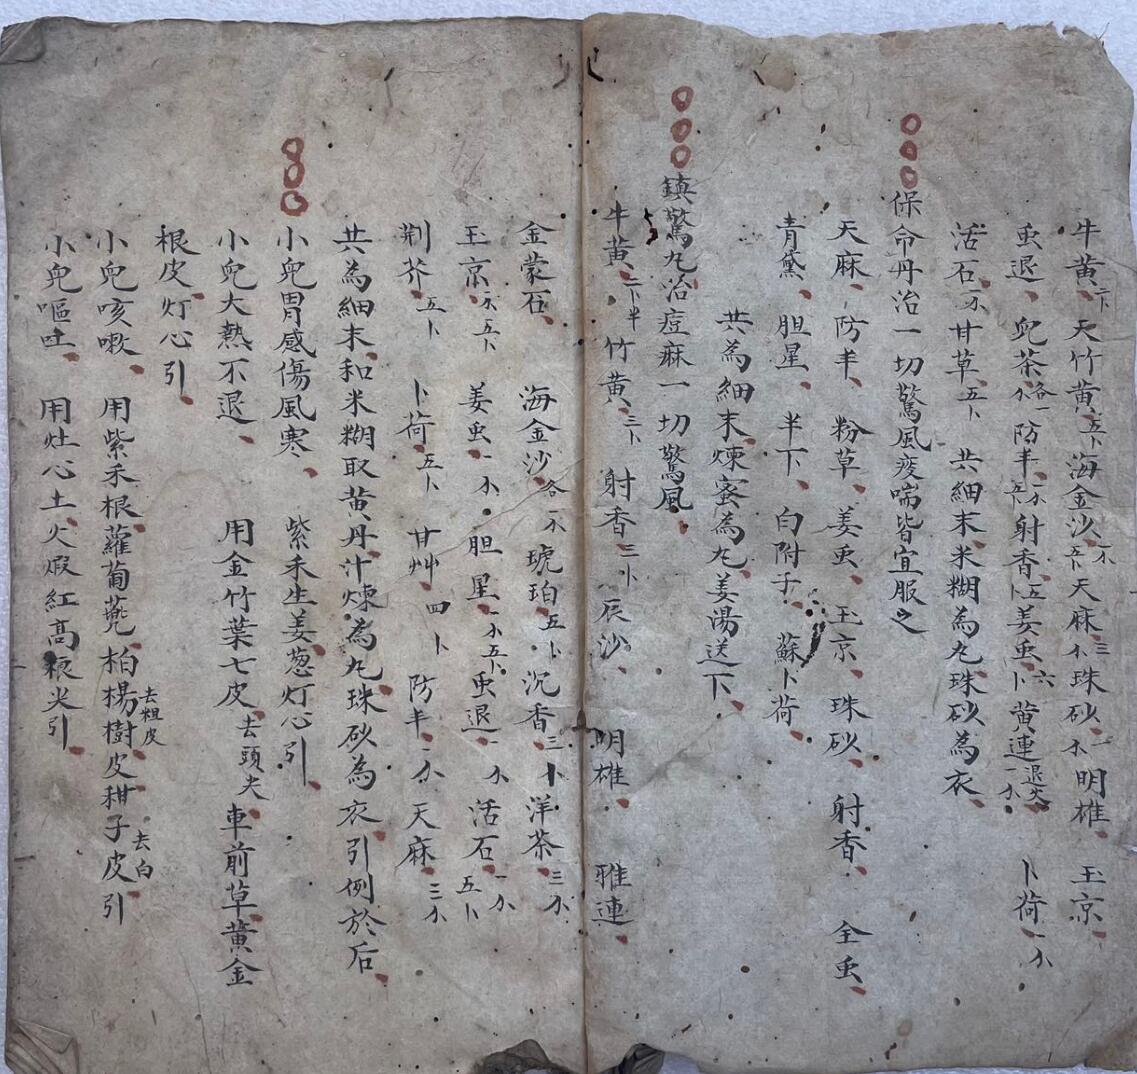 牛黄卜天竹黄五卜海金沙一分五卜天麻三分珠砂一分明雄玉京
虫退兜茶各一分防羊一分五卜射香五卜姜虫六卜黄連退火一分卜荷一分
活石一分甘草五卜共細末米糊為丸珠砂為衣
保命丹治一切驚風痰喘皆宜服之
天麻防羊粉草姜虫玉京珠砂射香全虫
青黛胆星半下白附子蘇卜荷
共為細末煉蜜為丸姜湯送下
鎮驚丸治痘麻一切驚風
牛黄二卜半竹黄三卜射香三卜辰沙明雄雅連
金蒙石海金沙各一分琥珀五卜沉香三卜洋茶三分
玉京一分五卜姜虫一分胆星一分五卜虫退一分活石一分五卜
荆芥五卜卜荷五卜甘艸四卜防羊一分天麻三分
共為細末和米糊取黄丹汁煉為丸珠砂為衣引例於后
小兜胃感傷風寒紫禾生姜葱灯心引
小兜大熱不退用金竹葉七皮去頭夫車前草黄金
根皮灯心引
小兜咳嗽用紫禾根蘿蔔柏楊樹皮去粗皮柑子皮去白引
小兜嘔吐用灶心土火煆紅高粮尖引